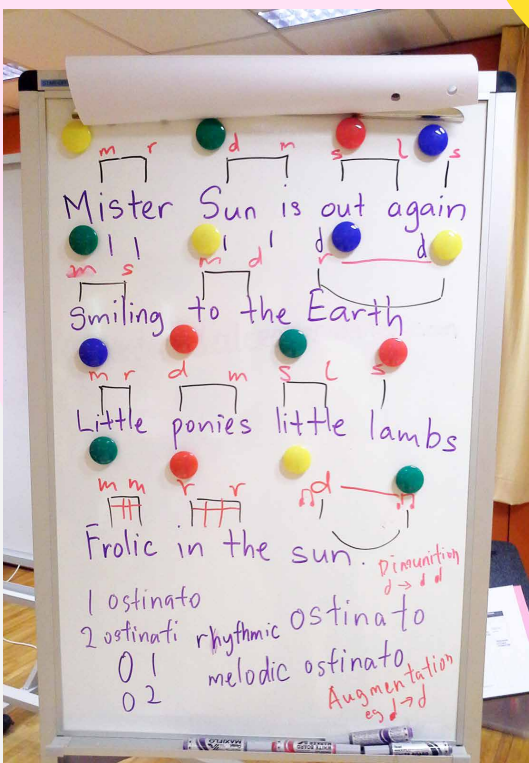 m r d m s l s
Mister Sun is out again
d d
m s m d r
Smiling to the Earth
m r d m s l s
Little ponies little lambs
m m r r d
Frolic in the sun.
Dimunition
d → d d
1 ostinato
2 ostinati rhythmic ostinato
O 1 melodic ostinato
O 2 Augmentation
eg d → d